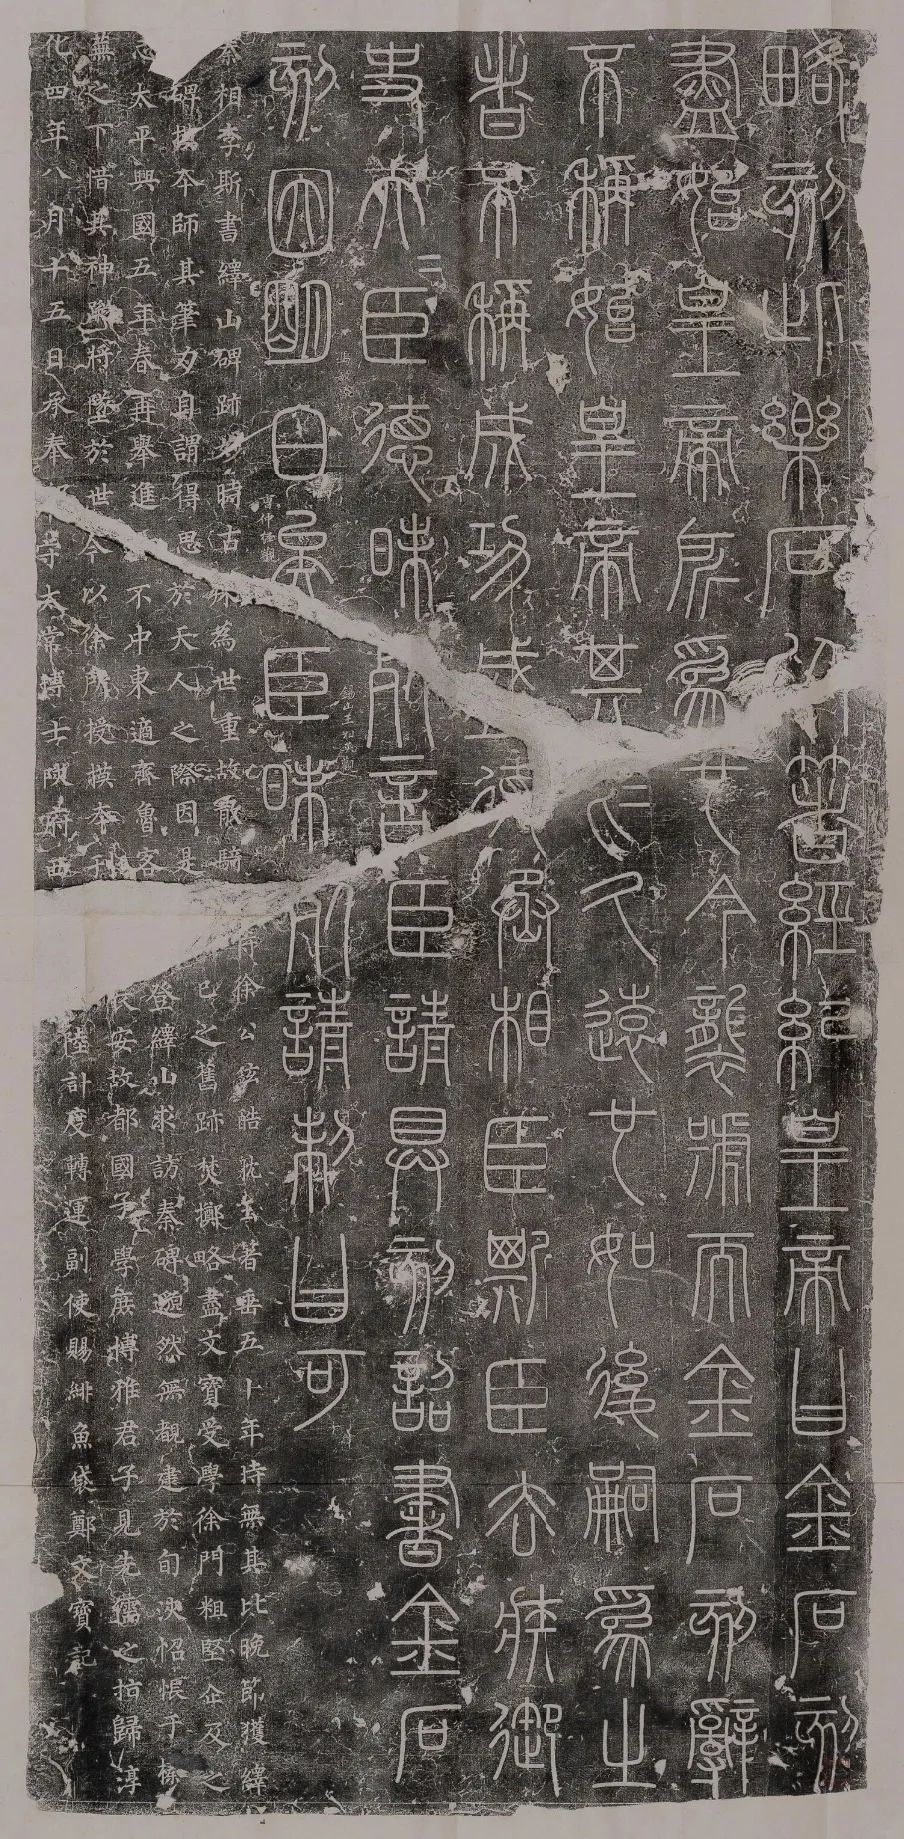 略刻此樂石以著經紀皇帝曰金石刻
盡始皇帝所爲也今襲號而金石刻辭
不稱始皇帝其於久遠也如後嗣爲之
者不稱成功盛德丞相臣斯臣去疾御
史夫二臣德昧死言臣請具刻詔書金石
刻因明白矣臣昧死請制曰可
秦相李斯書繹山碑跡妙時古殊為世重故散騎侍徐公鉉酷耽玉著垂五十年時無其比晚節獲繹
碑摸本師其筆力自謂得思於天人之際因是己之舊跡焚擲略盡文寶受學徐門粗堅企及之
志太平興國五年春再舉進不中東適齊魯客登繹山求訪秦碑邈然無覩逮於旬浹怊悵于榛
蕪之下惜其神蹤將墜於世今以徐所授摸本刊長安故都國子學庶博雅君子見先儒之指歸淳
化四年八月十五日承奉守太常博士陝府西陸計度轉運副使賜緋魚袋鄭文寶記